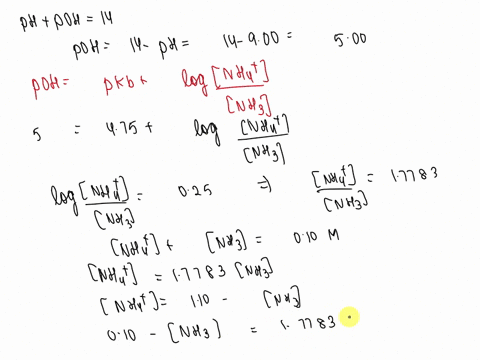 pH + pOH = 14
pOH = 14 - pH = 14 - 9.00 = 5.00
pOH = pKb + log [NH4+] / [NH3]
5 = 4.75 + log [NH4+] / [NH3]
log [NH4+] / [NH3] = 0.25 ⇒ [NH4+] / [NH3] = 1.7783
[NH4+] + [NH3] = 0.10 M
[NH4+] = 1.7783 [NH3]
[NH4+] = 1.10 - [NH3]
0.10 - [NH3] = 1.7783